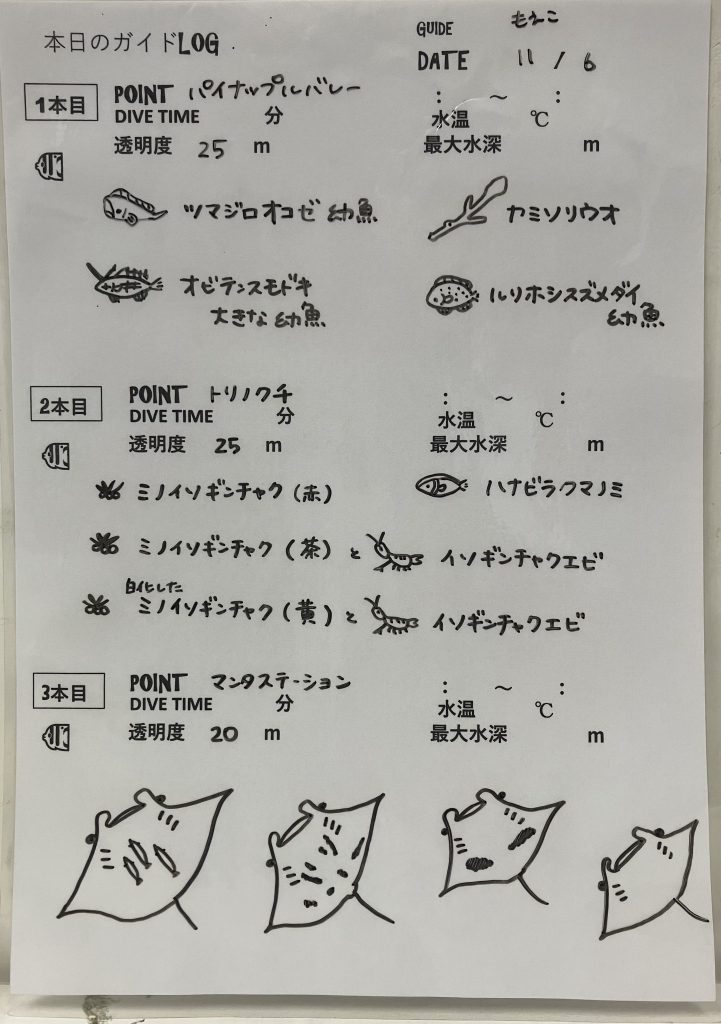 本日のガイドLOG
GUIDE もえこ
DATE 11 / 6
1本目 POINT パイナップルバレー : ～ :
DIVE TIME 分 水温 ℃
透明度 25 m 最大水深 m
ツマジロオコゼ 幼魚 カミソリウオ
オビテンスモドキ ルリホシスズメダイ
大きな幼魚 幼魚
2本目 POINT トリノクチ : ～ :
DIVE TIME 分 水温 ℃
透明度 25 m 最大水深 m
ミノイソギンチャク (赤) ハナビラクマノミ
ミノイソギンチャク (茶) と イソギンチャクエビ
白化した
ミノイソギンチャク (黄) と イソギンチャクエビ
3本目 POINT マンタステーション : ～ :
DIVE TIME 分 水温 ℃
透明度 20 m 最大水深 m